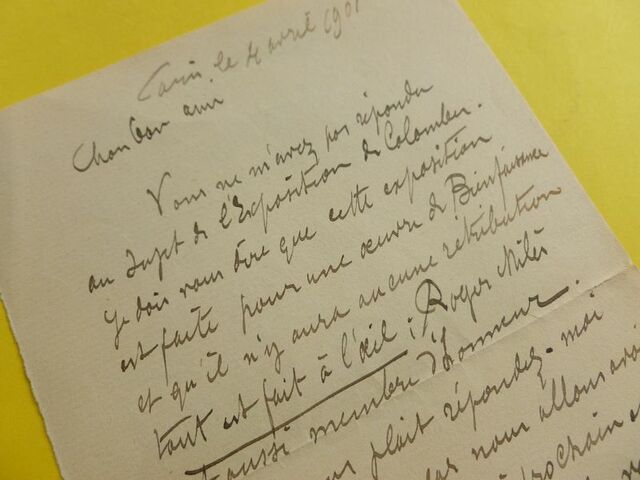 Paris, le 4 avril 1901
Mon bon ami
Vous ne m'avez pas répondu
au sujet de l'Exposition de Colombes.
Je dois vous dire que cette exposition
est faite pour une œuvre de Bienfaisance
et qu'il n'y aura aucune rétribution
tout est fait à l'œil ; Roger Milès
aussi membre d'honneur.
plait répondez-moi
nous allons avoir
prochain